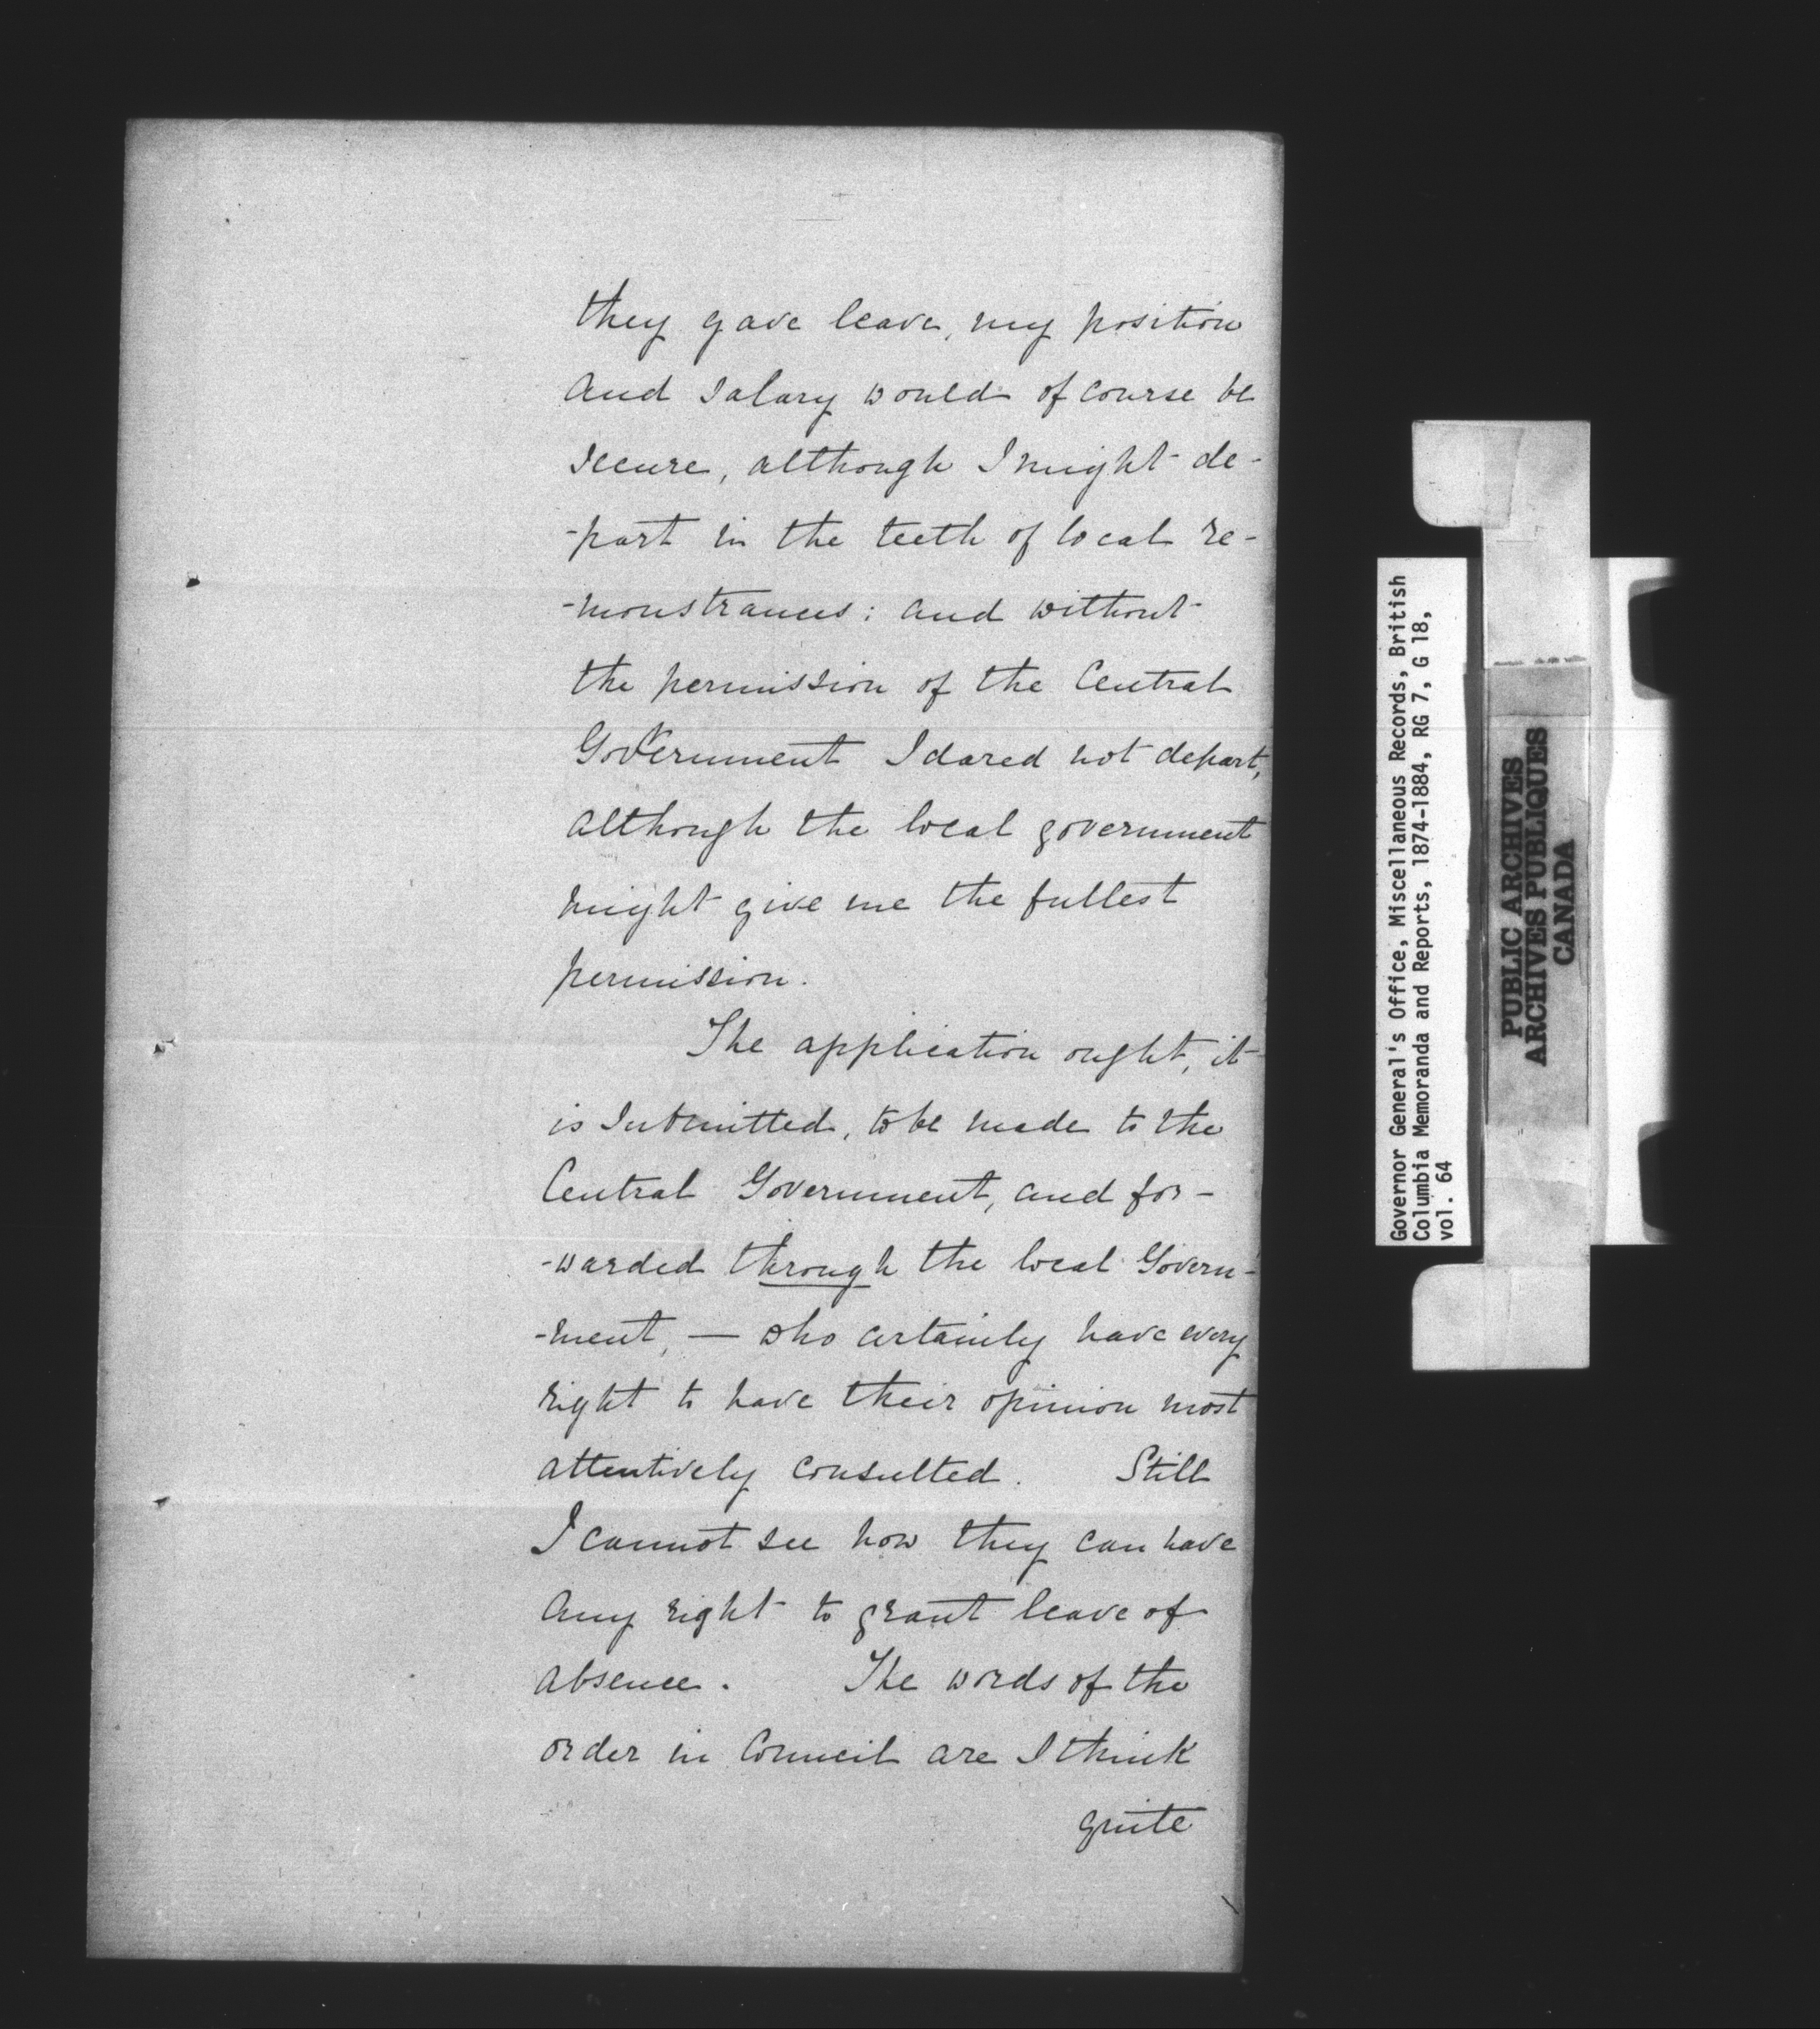 they gave leave, my position
and salary would of course be
secure, although I might de-
-part in the teeth of local re-
-monstrances: and without
the permission of the Central
Government I dared not depart,
although the local government
might give me the fullest
permission.
The application ought, it
is submitted, to be made to the
Central Government, and for-
-warded through the local Govern-
-ment, — who certainly have every
right to have their opinion most
attentively consulted. Still
I cannot see how they can have
any right to grant leave of
absence. The words of the
order in Council are I think
quite
Governor General's Office, Miscellaneous Records, British
Columbia Memoranda and Reports, 1874-1884, RG 7, G 18,
vol. 64
PUBLIC ARCHIVES
ARCHIVES PUBLIQUES
CANADA